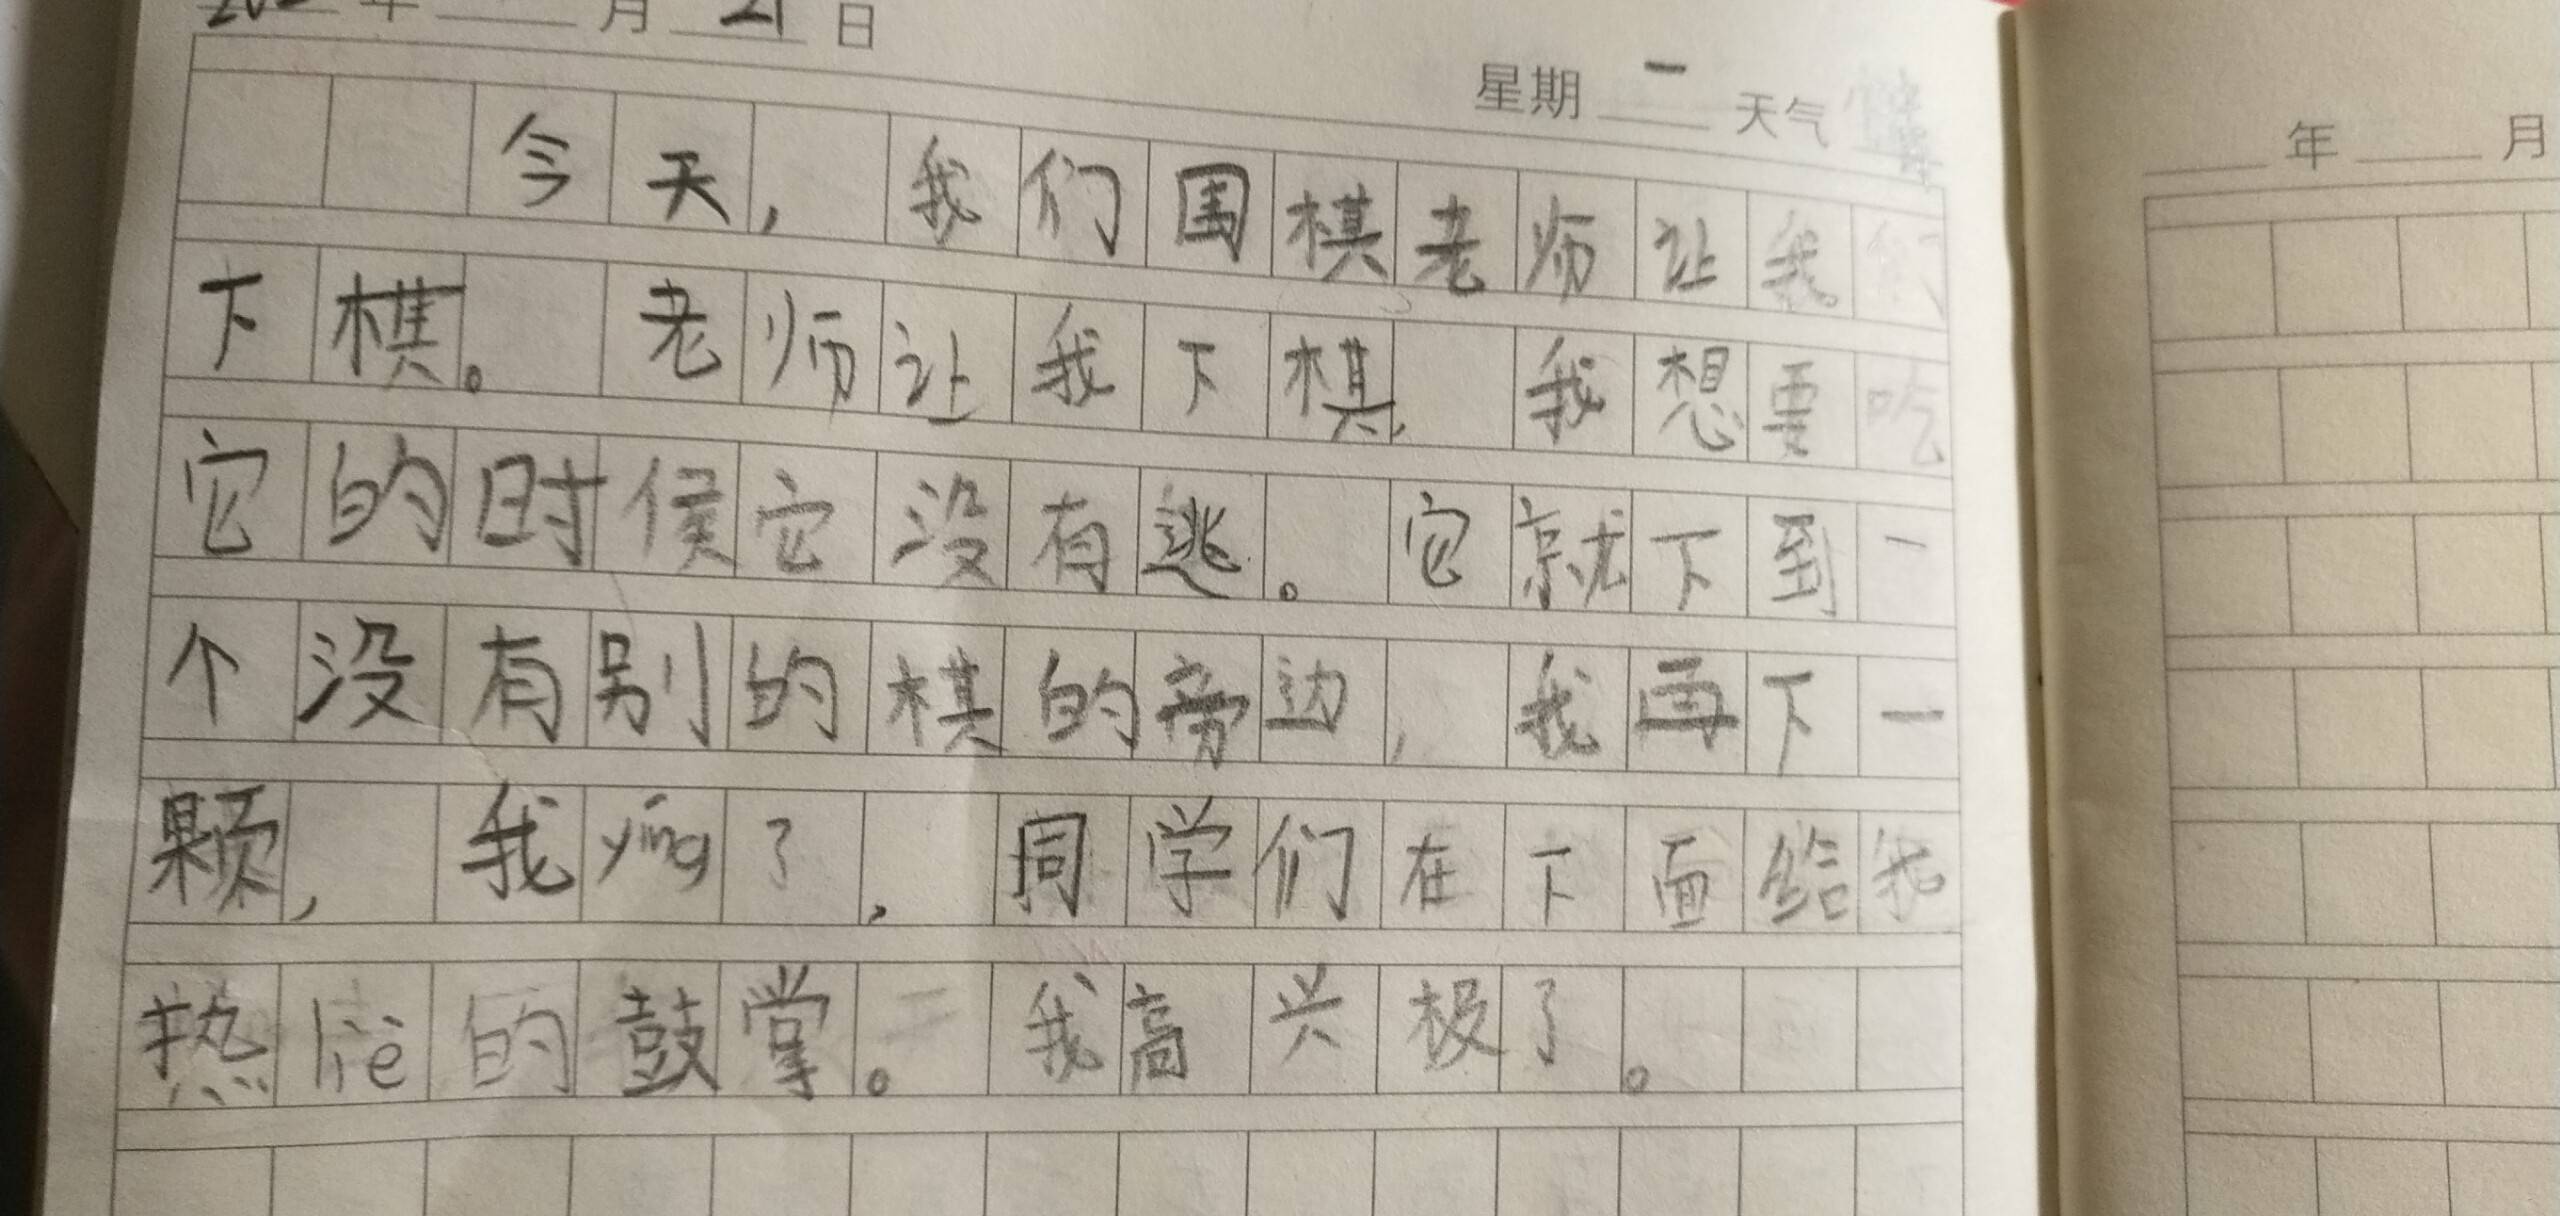 年 月 21 日
星期 一 天气
今天，我们围棋老师让我们
下棋。老师让我下棋，我想要吃
它的时候它没有逃。它就下到一
个没有别的棋的旁边，我再下一
颗，我yíng了，同学们在下面给我
热liè的鼓掌。我高兴极了。
年 月